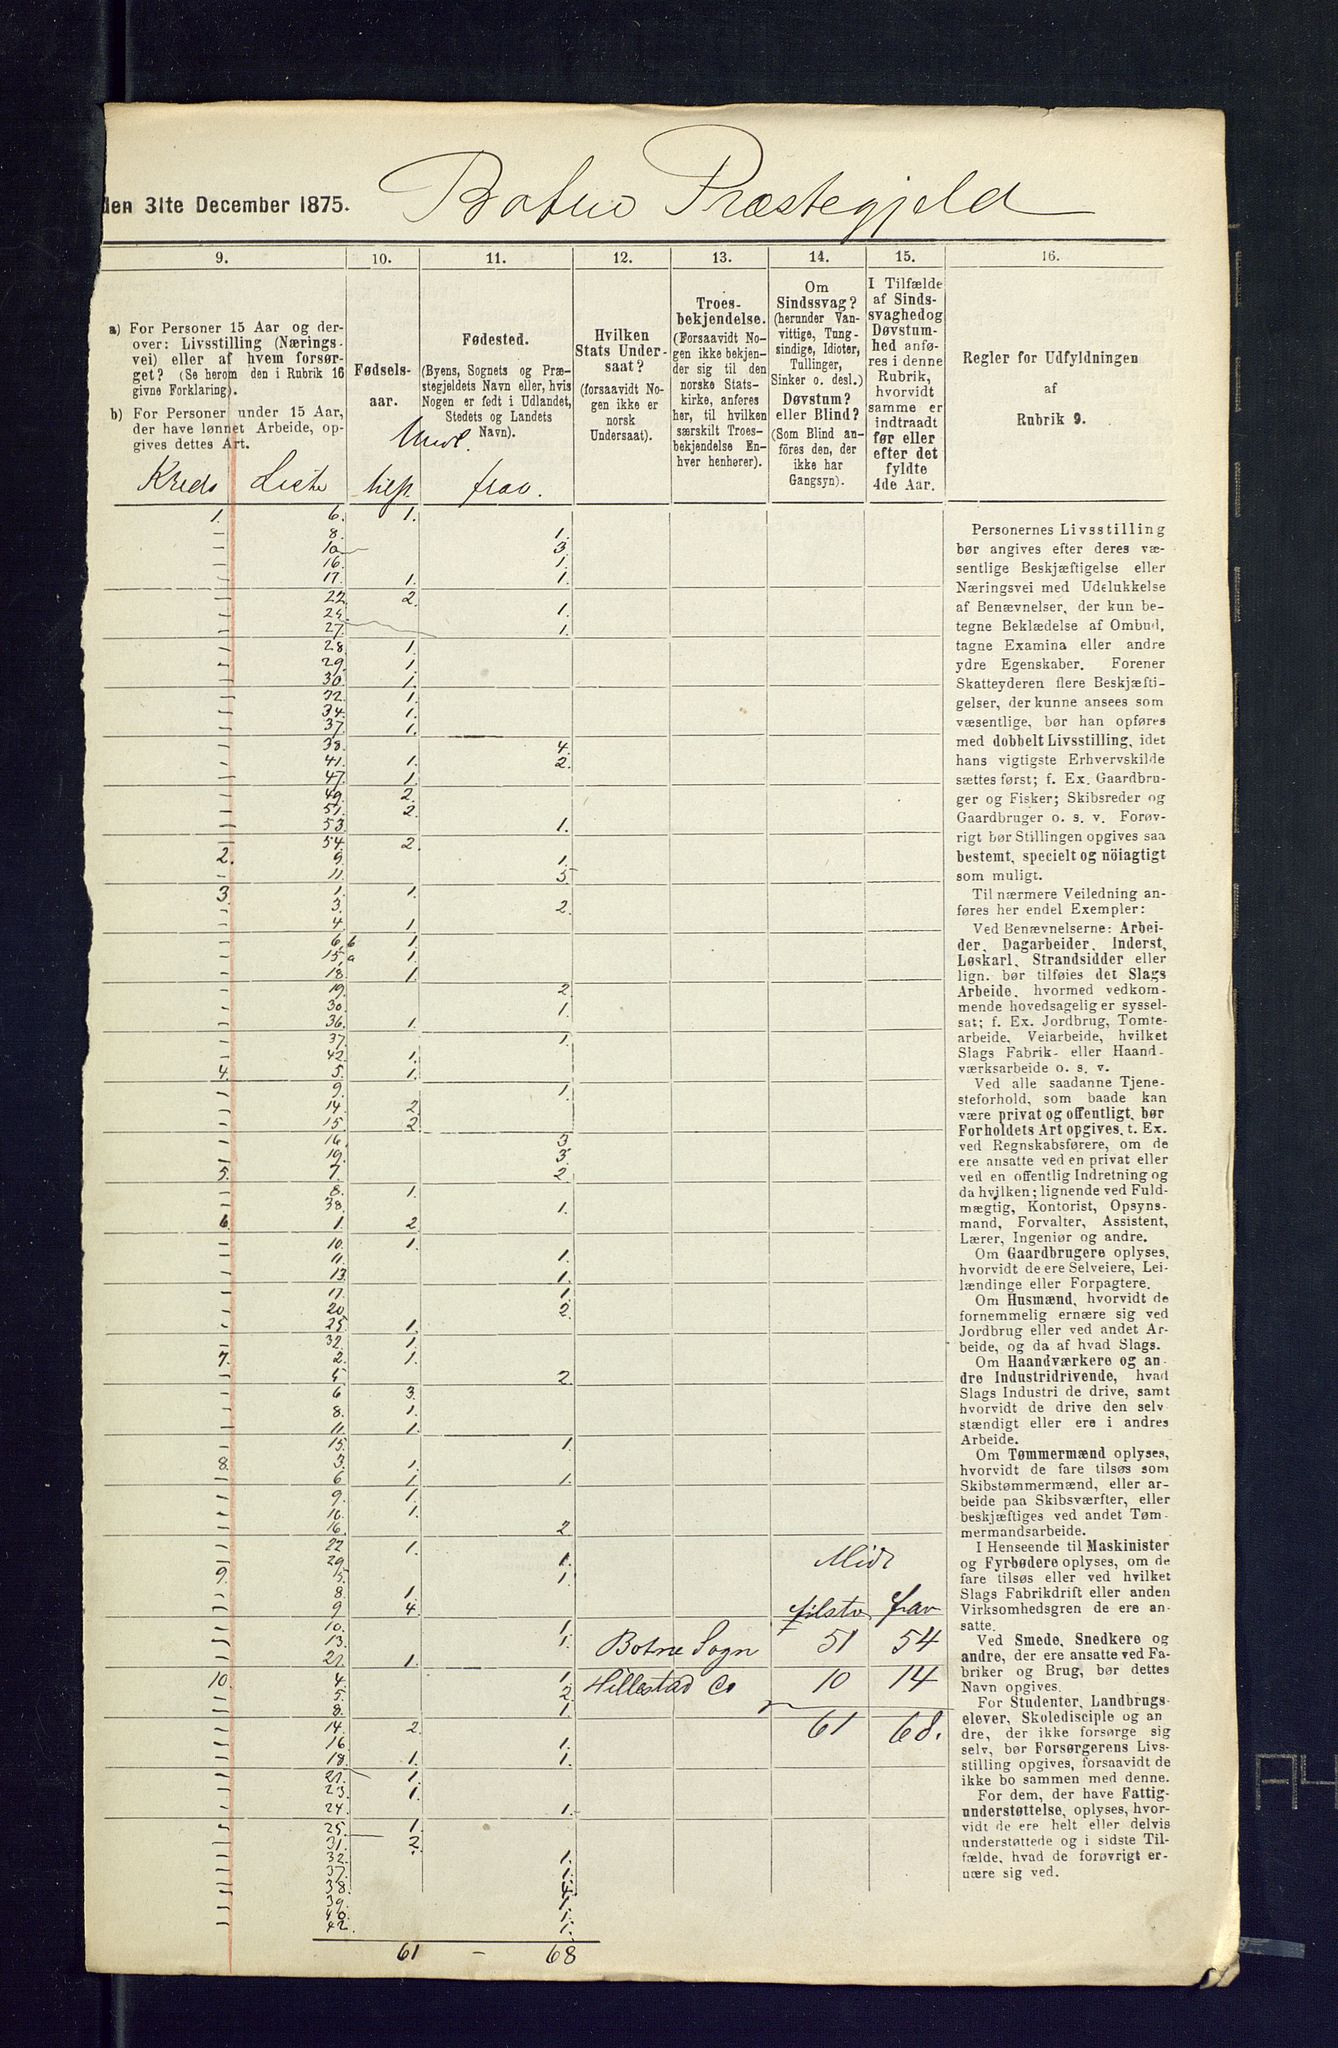 den 31te December 1875. Botne Præstegjeld
9. 10. 11. 12. 13. 14. 15. 16.
a) For Personer 15 Aar og der-
over: Livsstilling (Nærings-
vei) eller af hvem forsør-
get? (Se herom den i Rubrik 16
givne Forklaring).
b) For Personer under 15 Aar,
der have lønnet Arbeide, op-
gives dettes Art.
Fødsels-
aar.
Fødested.
(Byens, Sognets og Præ-
stegjeldets Navn eller, hvis
Nogen er født i Udlandet,
Stedets og Landets
Navn).
Hvilken
Stats Under-
saat?
(forsaavidt No-
gen ikke er
norsk
Undersaat).
Troes-
bekjendelse.
(Forsaavidt No-
gen ikke bekjen-
der sig til den
norske Stats-
kirke, anføres
her, til hvilken
særskilt Troes-
bekjendelse En-
hver henhører).
Om
Sindssvag?
(herunder Van-
vittige, Tung-
sindige, Idioter,
Tullinger,
Sinker o. desl.)
Døvstum?
eller Blind?
(Som Blind an-
føres den, der
ikke har
Gangsyn).
I Tilfælde
af Sinds-
svaghed og
Døvstum-
hed anfø-
res i denne
Rubrik,
hvorvidt
samme er
indtraadt
før eller
efter det
fyldte
4de Aar.
Regler for Udfyldningen
af
Rubrik 9.
Kreds Liste tilst. frav.
1. 6. 1.
– 8. 1.
– 10 3
– 16. 1.
– 17. 1. 1.
– 22. 2.
– 25. 1.
– 27. 1.
– 28. 1.
– 29. 1.
– 30. 1.
– 32. 1.
– 34. 1.
– 37. 1.
– 38. 4.
– 41. 1. 2.
– 47. 1.
– 49. 2.
– 51. 2.
– 53. 1.
– 54. 2.
2. 9. 1.
– 11. 5
3. 1. 1.
– 3. 2.
– 4. 1.
– 6. b 1.
– 15. a 1.
– 18. 1.
– 19. 2
– 30. 1.
– 36. 1.
– 37. 1.
– 42. 1.
4. 5. 1.
– 9. 1.
– 14. 2.
– 15. 2.
– 16. 3
– 19. 3.
5. 7. 2.
– 8. 1.
– 38. 1.
6. 1. 2.
– 10. 1.
– 11. 1.
– 13. 1.
– 17. 1.
– 20. 2.
– 25. 1.
– 32. 1.
7. 2. 1.
– 5 2.
– 6 3.
– 8. 1.
– 11. 1.
– 15. 1.
8. 3. 1.
– 6 1. 1.
– 9. 1.
– 10. 1.
– 16. 2
– 22 1.
– 29. 1.
9. 5. 1.
– 8. 1.
– 9 4.
– 10. 1
– 13. 1.
– 21. 1.
10. 4. 1.
– 5. 2.
– 8. 1
– 14. 2.
– 16 1.
– 18. 1. 1.
– 21. 1.
– 23. 1.
– 24. 1.
– 25. 1.
– 31. 2.
– 32. 1.
– 37. 1.
– 38. 4.
– 39. 1.
– 40. 1.
– 42. 1.
61 – 68
Midl
tilstv frav
Botne Sogn 51 54
Hillestad Do 10 14
61 68.
Personernes Livsstilling
bør angives efter deres væ-
sentlige Beskjæftigelse eller
Næringsvei med Udelukkelse
af Benævnelser, der kun be-
tegne Beklædelse af Ombud,
tagne Examina eller andre
ydre Egenskaber. Forener
Skatteyderen flere Beskjæfti-
gelser, der kunne ansees som
væsentlige, bør han opføres
med dobbelt Livsstilling, idet
hans vigtigste Erhvervskilde
sættes først; f. Ex. Gaardbru-
ger og Fisker; Skibsreder og
Gaardbruger o. s. v. Forøv-
rigt bør Stillingen opgives saa
bestemt, specielt og nöiagtigt
som muligt.
Til nærmere Veiledning an-
føres her endel Exempler:
Ved Benævnelserne: Arbei-
der, Dagarbeider, Inderst,
Løskarl, Strandsidder eller
lign. bør tilføies det Slags
Arbeide, hvormed vedkom-
mende hovedsagelig er syssel-
sat; f. Ex. Jordbrug, Tomte-
arbeide, Veiarbeide, hvilket
Slags Fabrik- eller Haand-
værksarbeide o. s. v.
Ved alle saadanne Tjene-
steforhold, som baade kan
være privat og offentligt, bør
Forholdets Art opgives, t. Ex.
ved Regnskabsførere, om de
ere ansatte ved en privat eller
ved en offentlig Indretning og
da hvilken; lignende ved Fuld-
mægtig, Kontorist, Opsyns-
mand, Forvalter, Assistent,
Lærer, Ingeniør og andre.
Om Gaardbrugere oplyses,
hvorvidt de ere Selveiere, Lei-
lændinge eller Forpagtere.
Om Husmænd, hvorvidt de
fornemmelig ernære sig ved
Jordbrug eller ved andet Ar-
beide, og da af hvad Slags.
Om Haandværkere og an-
dre Industridrivende, hvad
Slags Industri de drive, samt
hvorvidt de drive den selv
stændigt eller ere i andres
Arbeide.
Om Tømmermænd oplyses,
hvorvidt de fare tilsøs som
Skibstømmermænd, eller ar-
beide paa Skibsværfter, eller
beskjæftiges ved andet Tøm-
mermandsarbeide.
I Henseende til Maskinister
og Fyrbødere oplyses, om de
fare tilsøs eller ved hvilket
Slags Fabrikdrift eller anden
Virksomhedsgren de ere an-
satte.
Ved Smede, Snedkere og
andre, der ere ansatte ved Fa-
briker og Brug, bør dettes
Navn opgives.
For Studenter, Landbrugs-
elever, Skoledisciple og an-
dre, der ikke forsørge sig
selv, bør Forsørgerens Livs-
stilling opgives, forsaavidt de
ikke bo sammen med denne.
For dem, der have Fattig-
understøttelse, oplyses, hvor-
vidt de ere helt eller delvis
understøttede og i sidste Til-
fælde, hvad de forøvrigt er-
nære sig ved.
A4